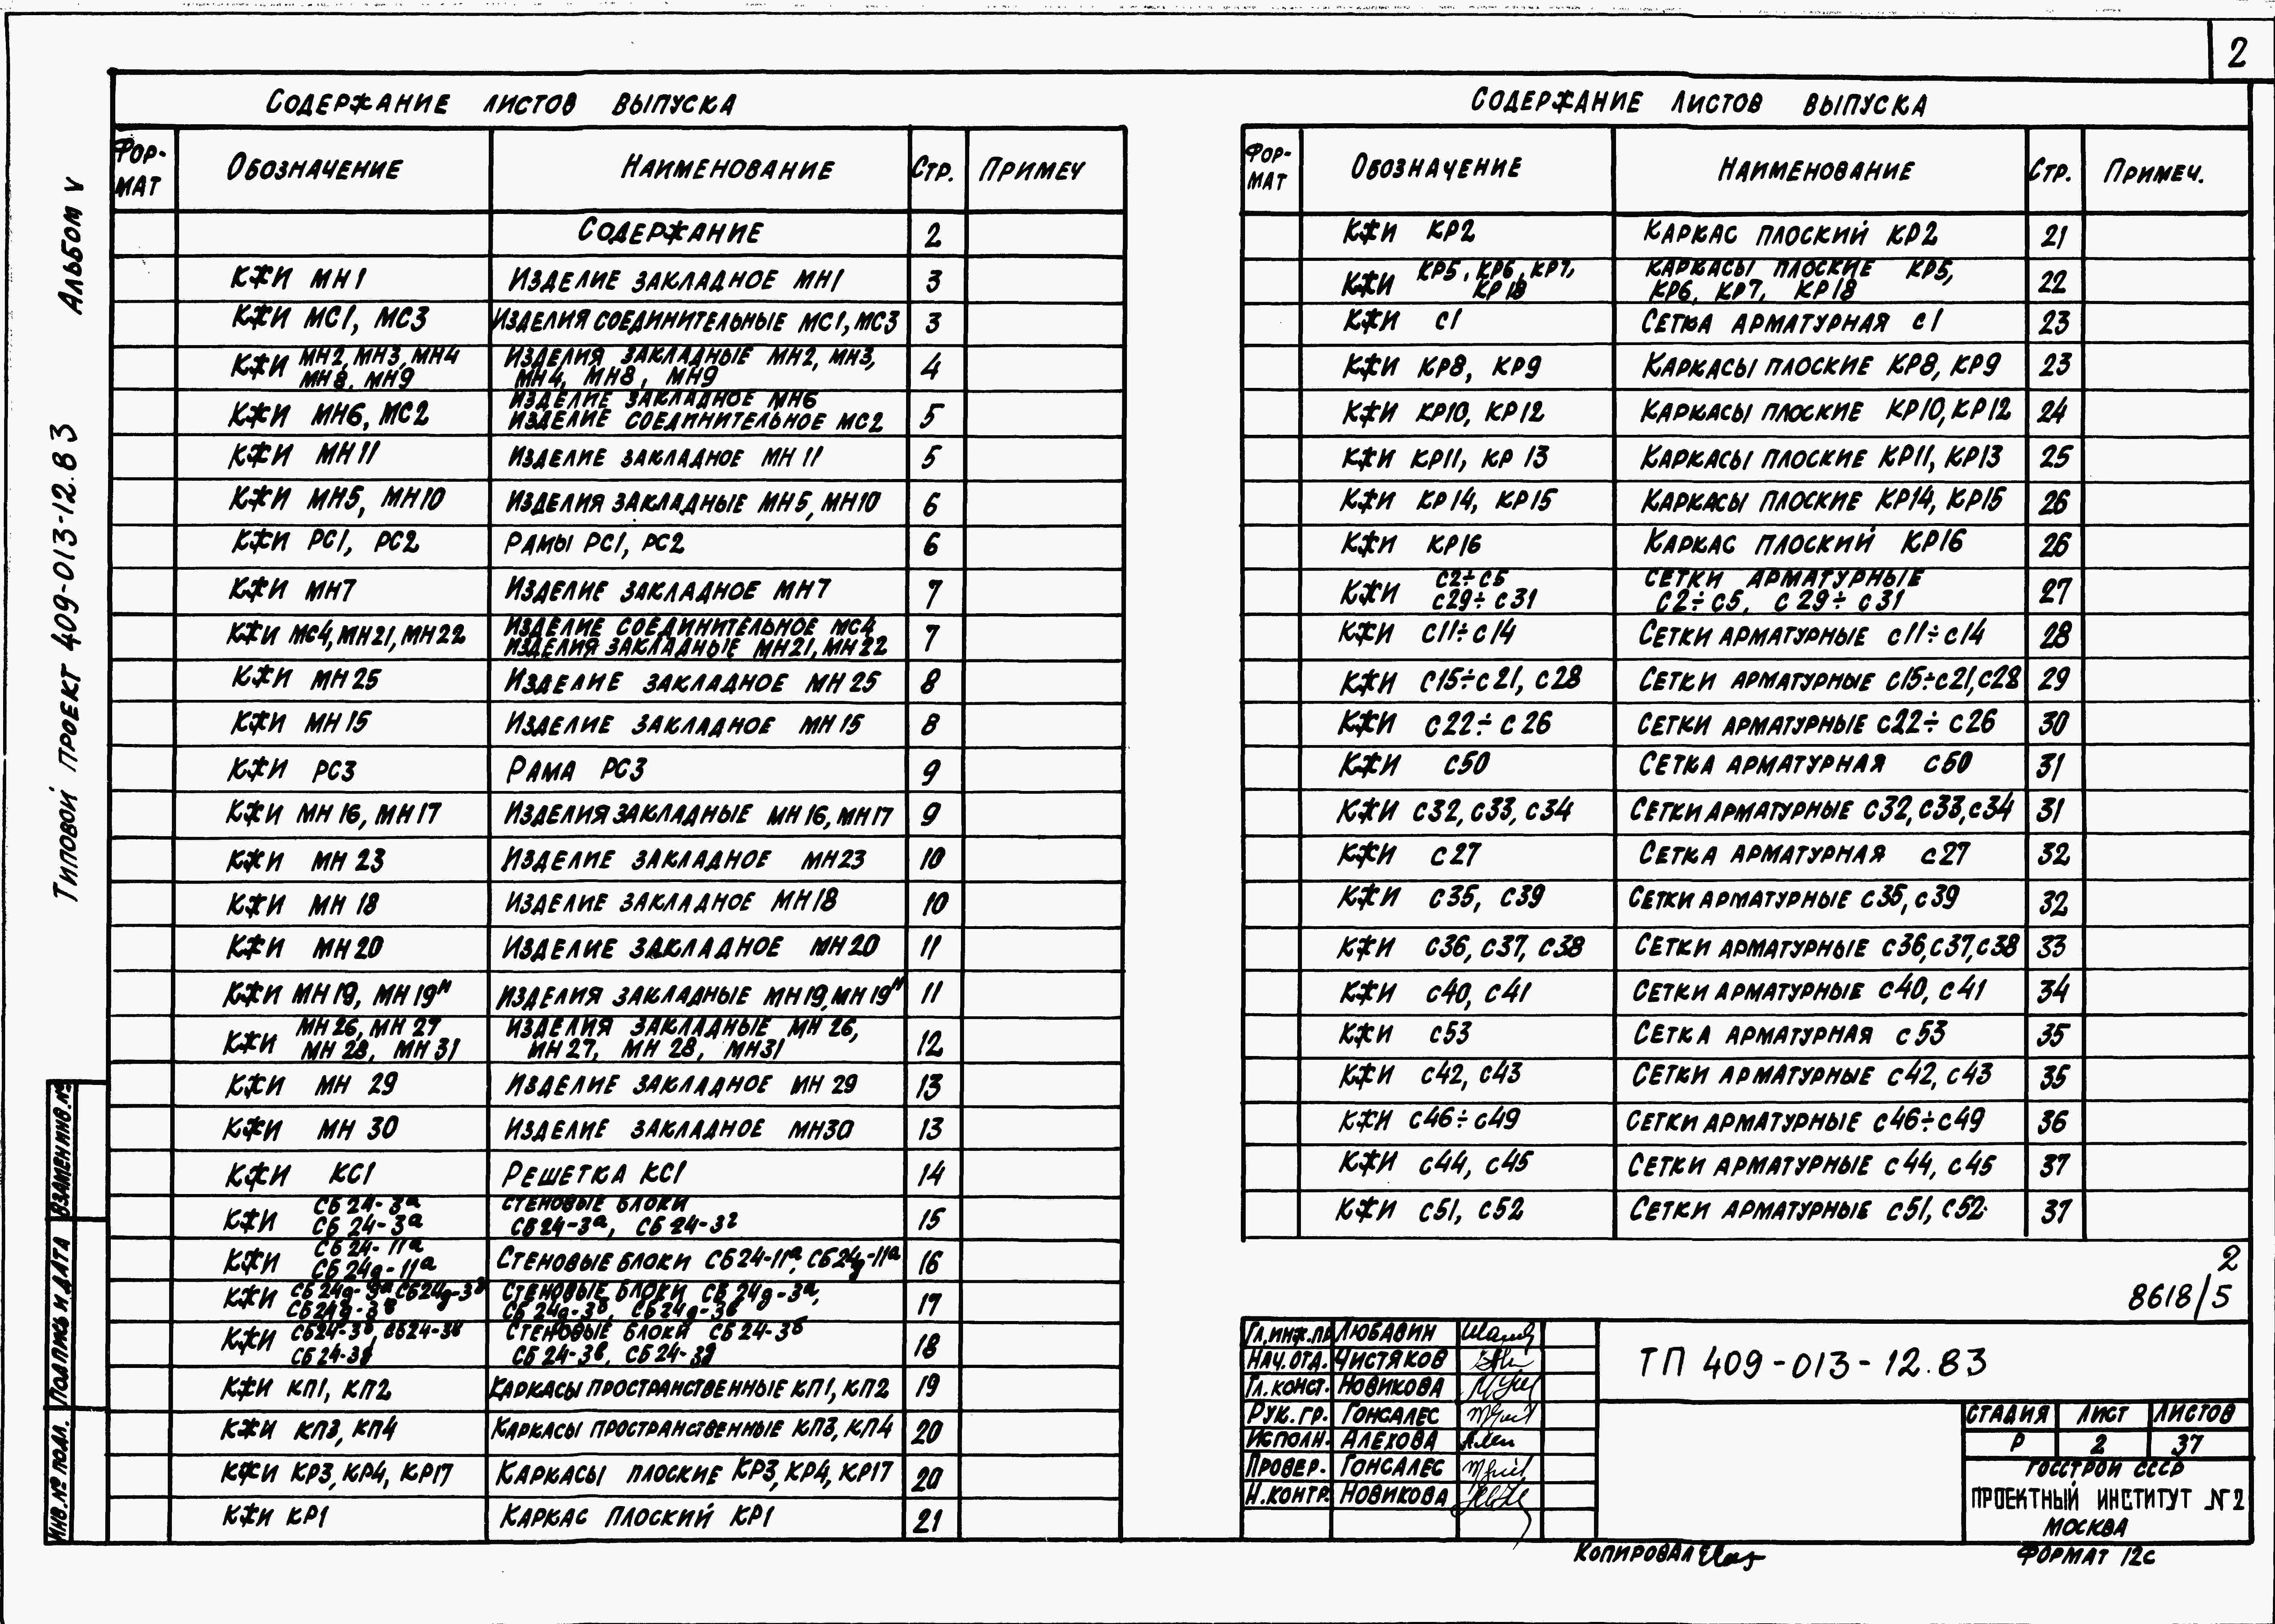 2
Типовой проект 409-013-12.83 Альбом V
Содержание листов выпуска
Формат Обозначение Наименование Стр. Примеч
Содержание 2
КЖИ МН1 Изделие закладное МН1 3
КЖИ МС1, МС3 Изделия соединительные МС1, МС3 3
КЖИ МН2, МН3, МН4 МН8, МН9 Изделия закладные МН2, МН3, МН4, МН8, МН9 4
КЖИ МН6, МС2 Изделие закладное МН6 Изделие соединительное МС2 5
КЖИ МН11 Изделие закладное МН11 5
КЖИ МН5, МН10 Изделия закладные МН5, МН10 6
КЖИ РС1, РС2 Рамы РС1, РС2 6
КЖИ МН7 Изделие закладное МН7 7
КЖИ МС4, МН21, МН22 Изделие соединительное МС4 Изделия закладные МН21, МН22 7
КЖИ МН25 Изделие закладное МН25 8
КЖИ МН15 Изделие закладное МН15 8
КЖИ РС3 Рама РС3 9
КЖИ МН16, МН17 Изделия закладные МН16, МН17 9
КЖИ МН23 Изделие закладное МН23 10
КЖИ МН18 Изделие закладное МН18 10
КЖИ МН20 Изделие закладное МН20 11
КЖИ МН19, МН19н Изделия закладные МН19, МН19н 11
КЖИ МН26, МН27 МН28, МН31 Изделия закладные МН26, МН27, МН28, МН31 12
КЖИ МН29 Изделие закладное МН29 13
КЖИ МН30 Изделие закладное МН30 13
КЖИ КС1 Решетка КС1 14
КЖИ СБ24-3а СБ24-3а Стеновые блоки СБ24-3а, СБ24-3г 15
КЖИ СБ24-11а СБ24д-11а Стеновые блоки СБ24-11а, СБ24д-11а 16
КЖИ Стеновые блоки СБ24д-3а, СБ24д-3б, СБ24д-3в 17
КЖИ Стеновые блоки СБ24-3б СБ24-3в, СБ24-3д 18
КЖИ КП1, КП2 Каркасы пространственные КП1, КП2 19
КЖИ КП3, КП4 Каркасы пространственные КП3, КП4 20
КЖИ КР3, КР4, КР17 Каркасы плоские КР3, КР4, КР17 20
КЖИ КР1 Каркас плоский КР1 21
Содержание листов выпуска
Формат Обозначение Наименование Стр. Примеч.
КЖИ КР2 Каркас плоский КР2 21
КЖИ КР5, КР6, КР7, КР18 Каркасы плоские КР5, КР6, КР7, КР18 22
КЖИ С1 Сетка арматурная С1 23
КЖИ КР8, КР9 Каркасы плоские КР8, КР9 23
КЖИ КР10, КР12 Каркасы плоские КР10, КР12 24
КЖИ КР11, КР13 Каркасы плоские КР11, КР13 25
КЖИ КР14, КР15 Каркасы плоские КР14, КР15 26
КЖИ КР16 Каркас плоский КР16 26
КЖИ С2÷С5 С29÷С31 Сетки арматурные С2÷С5, С29÷С31 27
КЖИ С11÷С14 Сетки арматурные С11÷С14 28
КЖИ С15÷С21, С28 Сетки арматурные С15÷С21, С28 29
КЖИ С22÷С26 Сетки арматурные С22÷С26 30
КЖИ С50 Сетка арматурная С50 31
КЖИ С32, С33, С34 Сетки арматурные С32, С33, С34 31
КЖИ С27 Сетка арматурная С27 32
КЖИ С35, С39 Сетки арматурные С35, С39 32
КЖИ С36, С37, С38 Сетки арматурные С36, С37, С38 33
КЖИ С40, С41 Сетки арматурные С40, С41 34
КЖИ С53 Сетка арматурная С53 35
КЖИ С42, С43 Сетки арматурные С42, С43 35
КЖИ С46÷С49 Сетки арматурные С46÷С49 36
КЖИ С44, С45 Сетки арматурные С44, С45 37
КЖИ С51, С52 Сетки арматурные С51, С52 37
2
8618/5
Гл.инж.пр Любавин
Нач.отд. Чистяков
Гл.конст. Новикова
Рук.гр. Гонсалес
Исполн. Алехова
Провер. Гонсалес
Н.контр. Новикова
ТП 409-013-12.83
Стадия Лист Листов
Р 2 37
Госстрой СССР
Проектный институт №2
Москва
Копировал
Формат 12с
Инв.№ подл. Подпись и дата Взамен инв.№